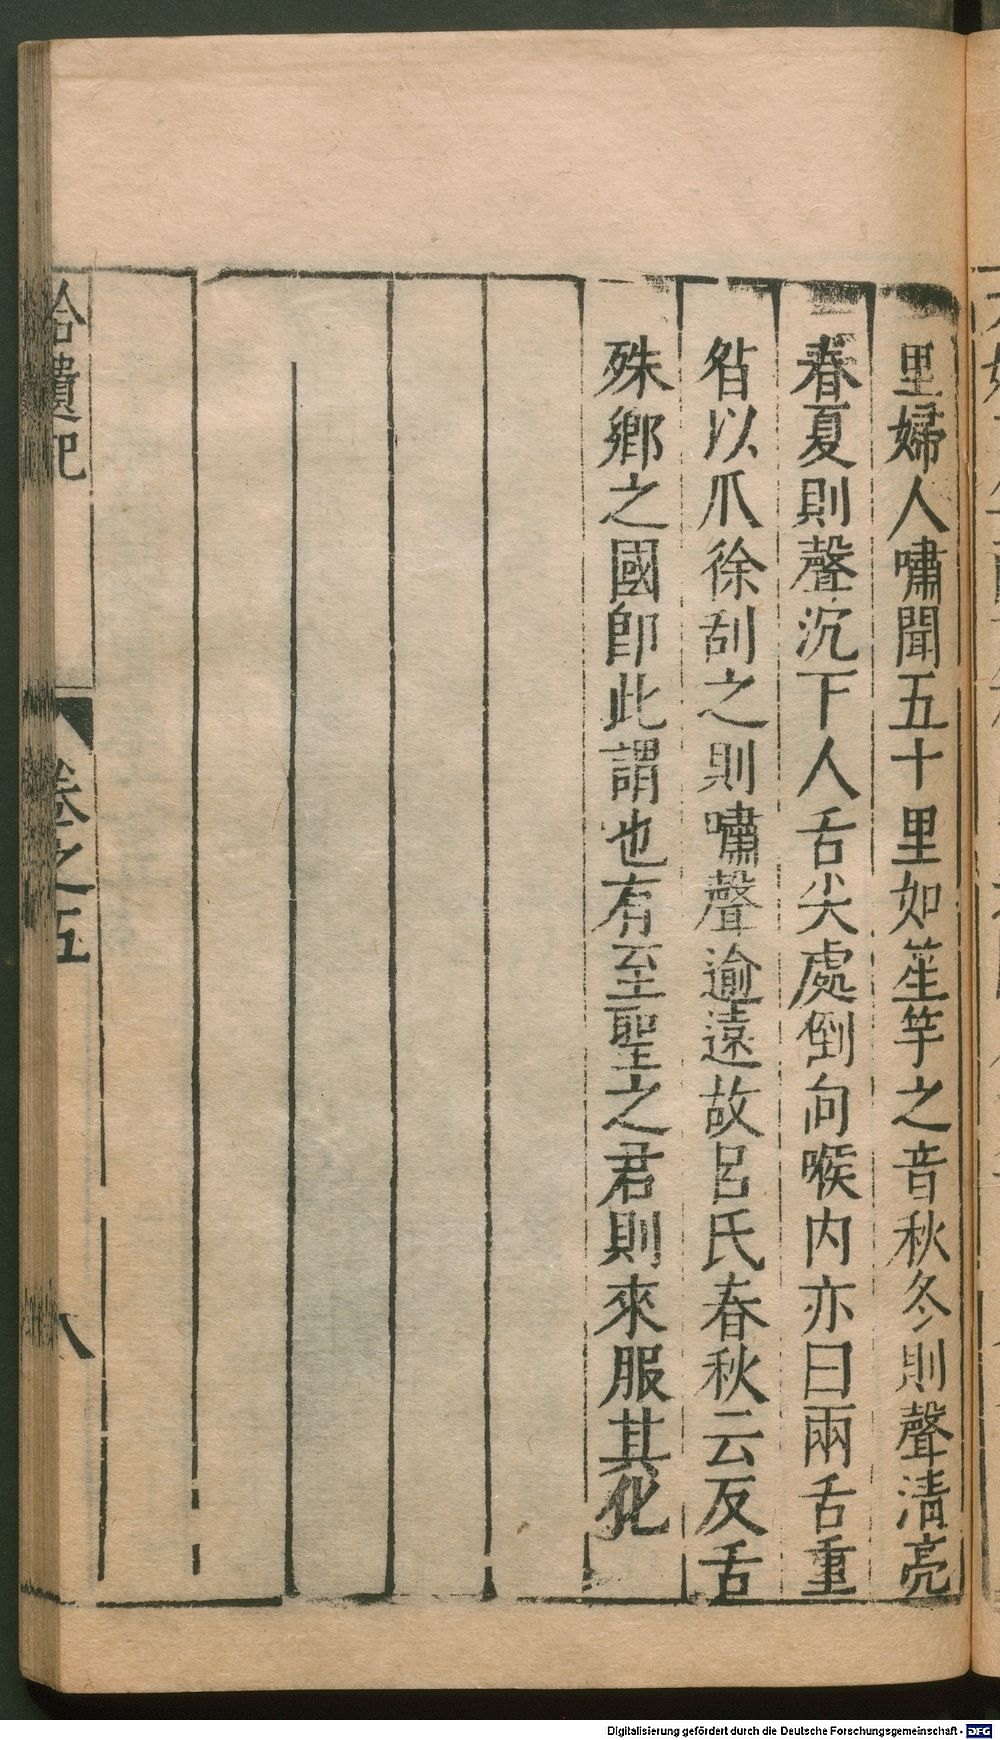 里婦人嘯聞五十里如笙竽之音秋冬則聲淸亮
春夏則聲沉下人舌尖處倒向喉内亦曰兩舌重
㫖以爪徐刮之則嘯聲逾遠故吕氏春秋云反舌
殊鄉之國卽此謂也有至聖之君則來服其化
拾遺記
卷之五
八
Digitalisierung gefördert durch die Deutsche Forschungsgemeinschaft - DFG